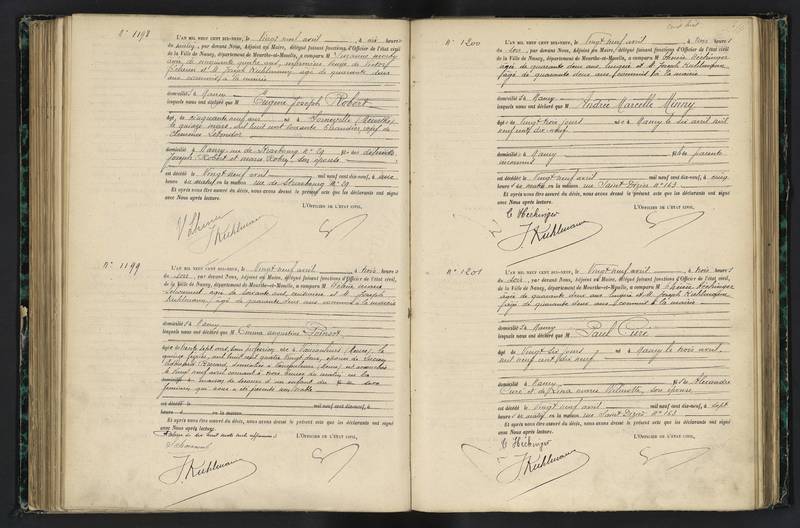 N° 1198
L'AN MIL NEUF CENT DIX-NEUF, le Vingt neuf avril, à dix heures
du matin, par devant Nous, Adjoint au Maire, délégué faisant fonctions d'Officier de l'état civil
de la Ville de Nancy, département de Meurthe-et-Moselle, a comparu M
âgée de cinquante quatre ans,
et M. Joseph Kuhlmann, âgé de quarante deux
ans, commis à la mairie
domicilié s à Nancy
lesquels nous ont déclaré que M Eugène Joseph Robert
âgé de cinquante neuf ans né à (Meurthe)
le quinze mars mil huit cent soixante époux de
Clémence
domicilié à Nancy, rue de Strasbourg N° 29 fils des défunts
Joseph Robert et Marie son épouse
est décédé le Vingt neuf avril mil neuf cent dix-neuf, à
heures du matin en la maison rue de Strasbourg N° 29
Et après nous être assuré du décès, nous avons dressé le présent acte que les déclarants ont signé
avec Nous après lecture.
L'OFFICIER DE L'ÉTAT CIVIL,
J. Kuhlmann
N° 1199
L'AN MIL NEUF CENT DIX-NEUF, le Vingt neuf avril, à trois heures
du soir, par devant Nous, Adjoint au Maire, délégué faisant fonctions d'Officier de l'état civil,
de la Ville de Nancy, département de Meurthe-et-Moselle, a comparu M
âgé de soixante ans, et M. Joseph
Kuhlmann, âgé de quarante deux ans commis à la mairie
domicilié s à Nancy
lesquels nous ont déclaré que M Emma Augustine Poinsot
âgée de trente sept ans, sans profession née à Vaucouleurs (Meuse), le
quinze mil huit cent quatre vingt deux, épouse de Lucien
domiciliée à Vaucouleurs (Meuse), est accouchée
le vingt neuf avril courant à trois heures du matin, en la
maison de d'un enfant du sexe
féminin qui nous a été présenté sans vie
est décédé le mil neuf cent dix-neuf, à
heures en la maison
Et après nous être assuré du décès, nous avons dressé le présent acte que les déclarants ont signé
avec Nous après lecture.
L'OFFICIER DE L'ÉTAT CIVIL,
J. Kuhlmann
N° 1200
L'AN MIL NEUF CENT DIX-NEUF, le Vingt neuf avril, à trois heures
du soir, par devant Nous, Adjoint au Maire, délégué faisant fonctions d'Officier de l'état civil
de la Ville de Nancy, département de Meurthe-et-Moselle, a comparu M Hechinger
âgée de quarante deux ans lingère et M. Joseph Kuhlmann
âgé de quarante deux ans commis à la mairie
domicilié s à Nancy
lesquels nous ont déclaré que M Andrée Marcelle Minny
âgée de vingt trois jours née à Nancy le six avril mil
neuf cent dix neuf
domiciliée à Nancy fille de parents
inconnus
est décédée le Vingt neuf avril mil neuf cent dix-neuf, à cinq
heures du matin en la maison rue Saint Dizier N° 163
Et après nous être assuré du décès, nous avons dressé le présent acte que les déclarants ont signé
avec Nous après lecture.
L'OFFICIER DE L'ÉTAT CIVIL,
C Hechinger
J. Kuhlmann
N° 1201
L'AN MIL NEUF CENT DIX-NEUF, le Vingt neuf avril, à trois heures
du soir, par devant Nous, Adjoint au Maire, délégué faisant fonctions d'Officier de l'état civil
de la Ville de Nancy, département de Meurthe-et-Moselle, a comparu M Hechinger
âgée de quarante deux ans lingère et M. Joseph Kuhlmann
âgé de quarante deux ans commis à la mairie
domicilié s à Nancy
lesquels nous ont déclaré que M Paul Curé
âgé de Vingt six jours né à Nancy le trois avril
mil neuf cent dix neuf
domicilié à Nancy fils de Alexandre
Curé et de Marie son épouse
est décédé le Vingt neuf avril mil neuf cent dix-neuf, à sept
heures du matin en la maison rue Saint Dizier N° 163
Et après nous être assuré du décès, nous avons dressé le présent acte que les déclarants ont signé
avec Nous après lecture.
L'OFFICIER DE L'ÉTAT CIVIL,
C Hechinger
J. Kuhlmann